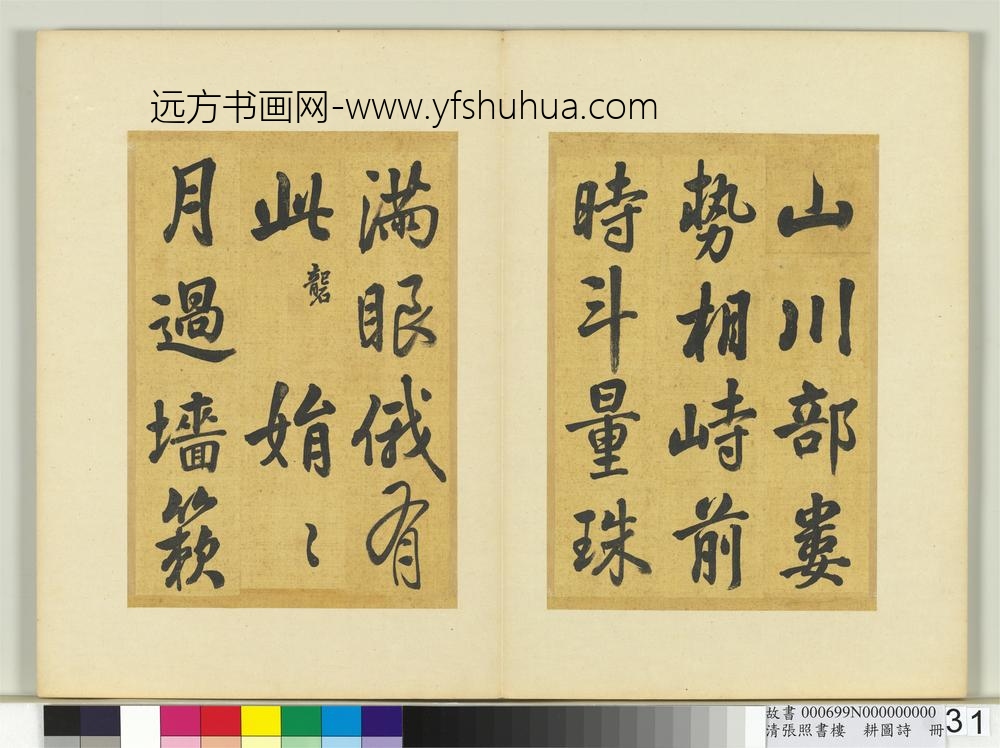 远方书画网-www.yfshuhua.com
山川部婁
勢相峙前
時斗量珠
滿眼俄有
此 礱 姢〻
月過墻簌
故書 000699N000000000
清張照書樓 耕圖詩 冊
31